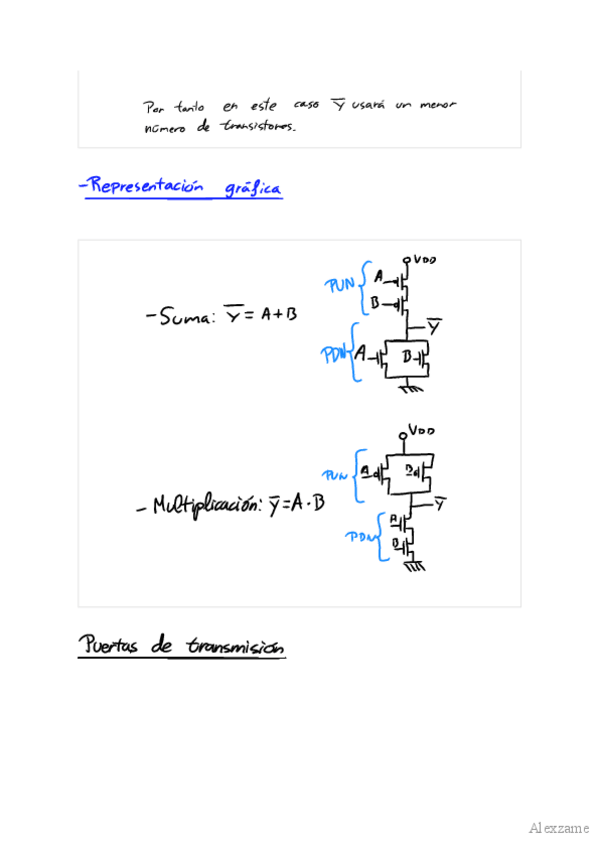 Por tanto en este caso Y̅ usará un menor
número de transistores.
-Representación gráfica
- Suma: Y̅ = A+B
PUN
A
B
VDD
Y̅
PDN
A
B
- Multiplicación: Y̅=A·B
VDD
PUN
A
B
Y̅
PDN
A
B
Puertas de transmisión
Alexzame